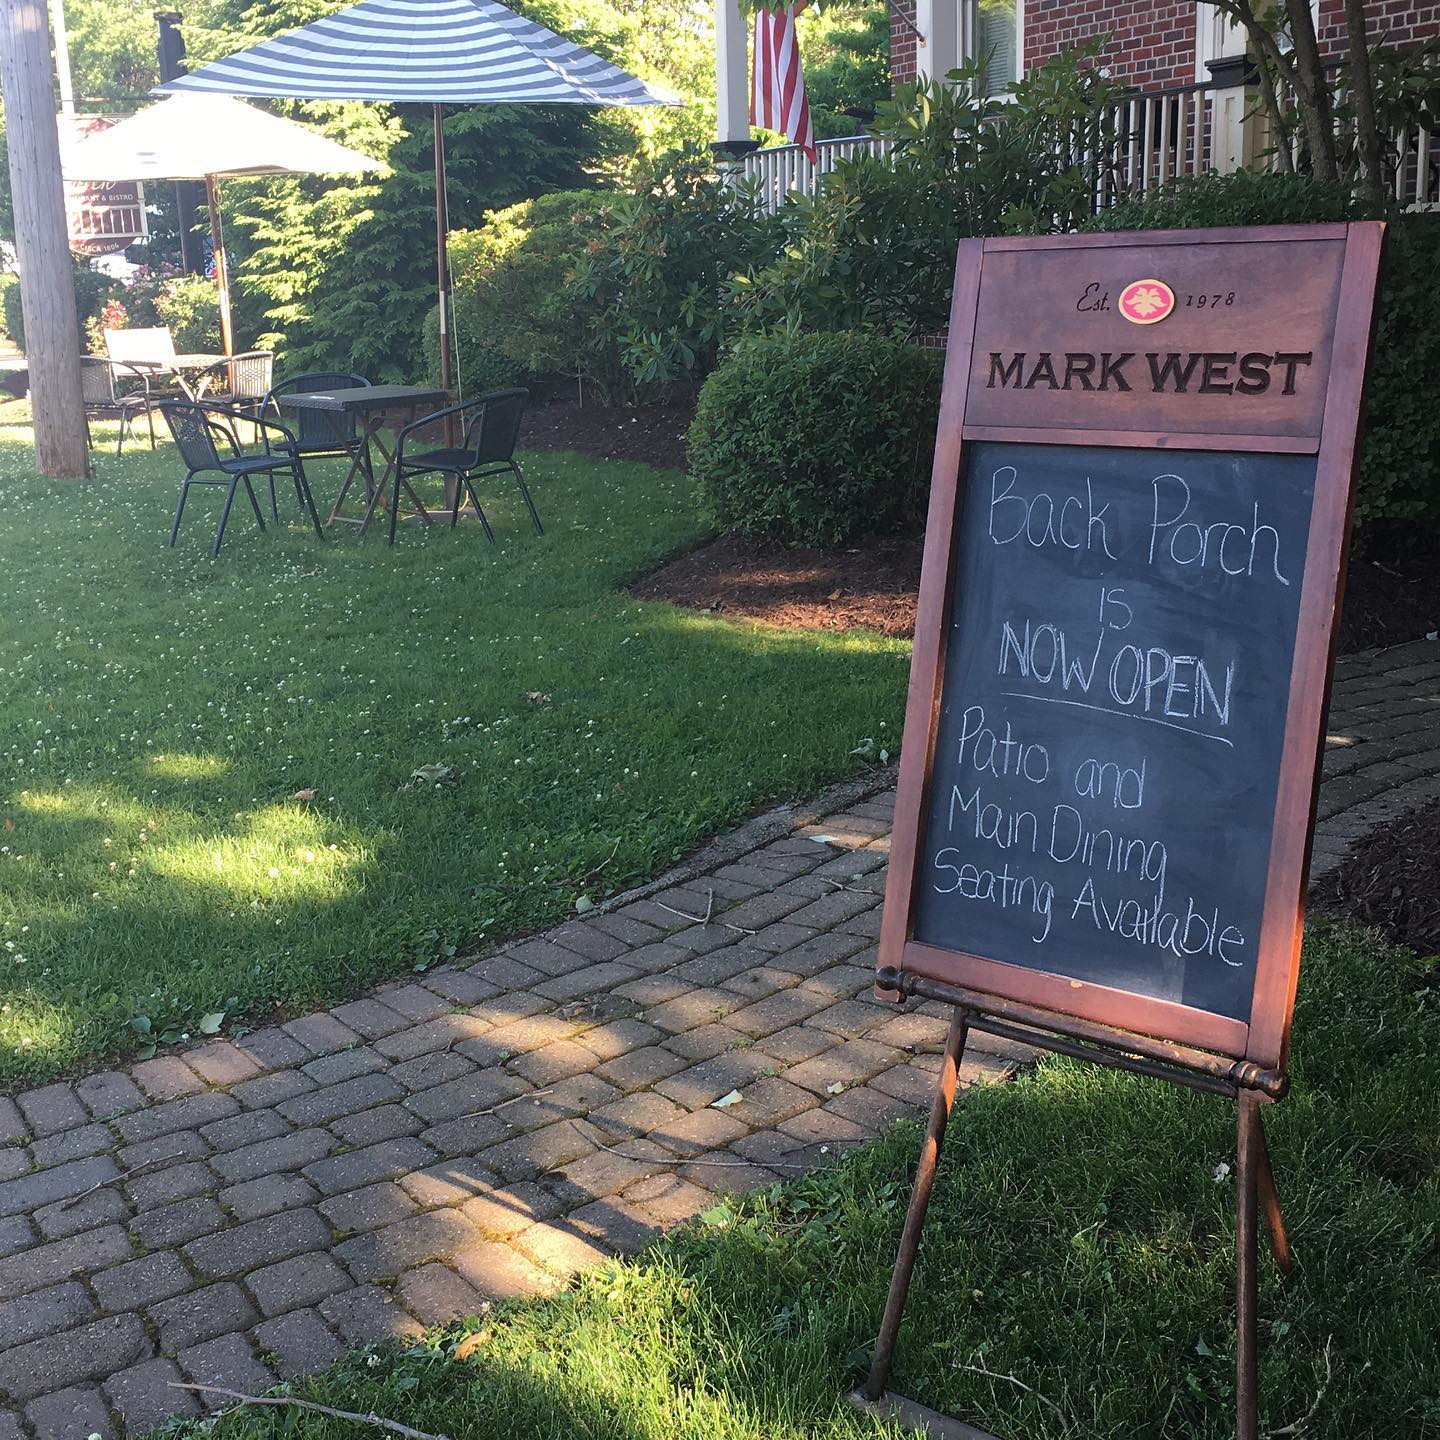 Est. 1978
MARK WEST
Back Porch
is
NOW OPEN
Patio and
Main Dining
Seating Available
& BISTRO
CIRCA 1806